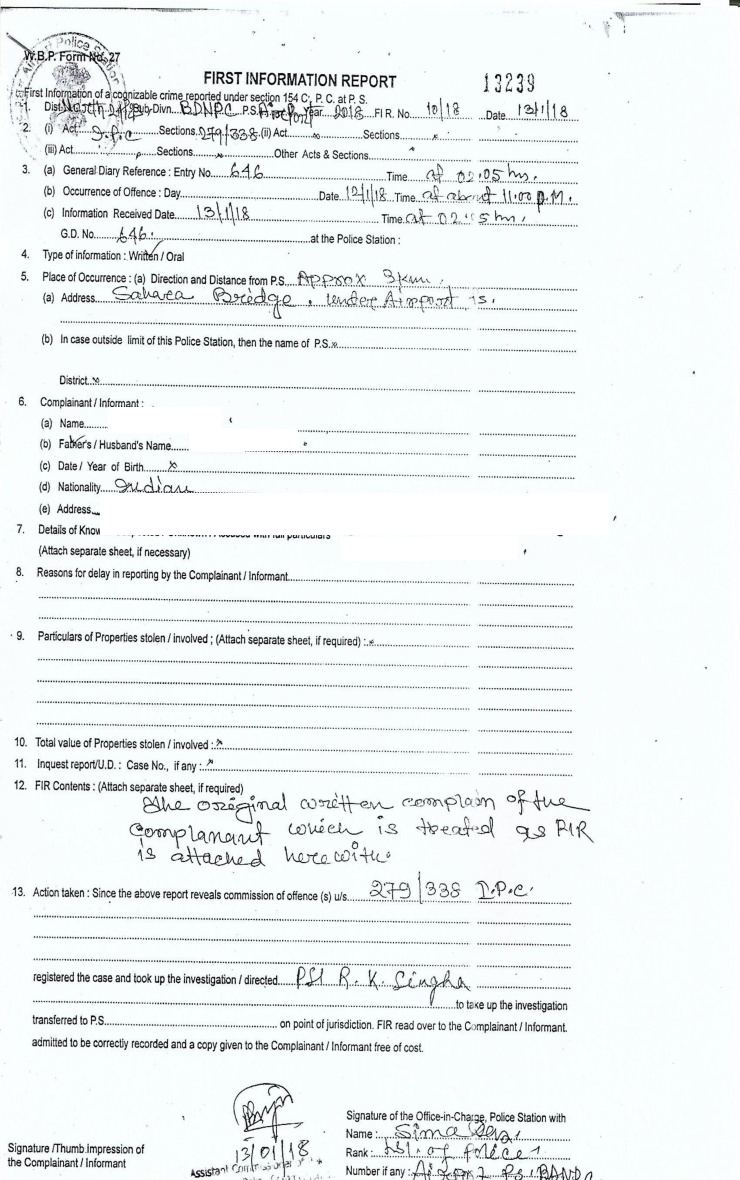 Police
W.B.P. Form No. 27
FIRST INFORMATION REPORT
13239
First Information of a cognizable crime reported under section 154 C. P. C. at P. S.
1. Dist. North 24 Pgs Sub-Divn. BDNPC P.S. Airport Year 2018 F I R. No. 10/18 Date 13/1/18
2. (i) Act I.P.C Sections 279/338 (ii) Act x Sections x
(iii) Act Sections x Other Acts & Sections
3. (a) General Diary Reference : Entry No. 646 Time at 02.05 hrs.
(b) Occurrence of Offence : Day Date 12/1/18 Time at about 11:00 P.M.
(c) Information Received Date 13/1/18 Time at 02:05 hrs.
G.D. No. 646. at the Police Station :
4. Type of information : Written / Oral
5. Place of Occurrence : (a) Direction and Distance from P.S. Approx 3 km.
(a) Address Sahara Bridge, under Airport PS.
(b) In case outside limit of this Police Station, then the name of P.S. x
District x
6. Complainant / Informant :
(a) Name
(b) Father's / Husband's Name
(c) Date / Year of Birth x
(d) Nationality Indian
(e) Address
7. Details of Know with full particulars
(Attach separate sheet, if necessary)
8. Reasons for delay in reporting by the Complainant / Informant
9. Particulars of Properties stolen / involved ; (Attach separate sheet, if required) : x
10. Total value of Properties stolen / involved : x
11. Inquest report/U.D. : Case No., if any : x
12. FIR Contents : (Attach separate sheet, if required)
The original written complain of the
complanant which is treated as FIR
is attached herewith.
13. Action taken : Since the above report reveals commission of offence (s) u/s. 279/338 I.P.C.
registered the case and took up the investigation / directed PSI R. K. Singha
to take up the investigation
transferred to P.S. on point of jurisdiction. FIR read over to the Complainant / Informant.
admitted to be correctly recorded and a copy given to the Complainant / Informant free of cost.
13/01/18
Assistant
Signature /Thumb.impression of
the Complainant / Informant
Signature of the Office-in-Charge, Police Station with
Name : Sima
Rank : of police
Number if any : Airport PS